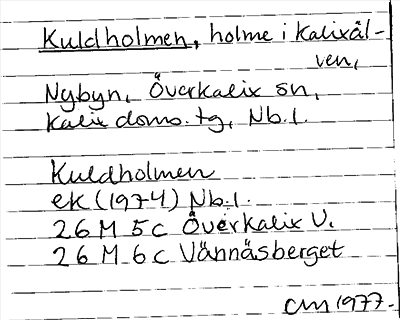 Kuldholmen, holme i Kalixäl-
ven,
Nybyn, Överkalix sn,
Kalix doms. tg, Nb.l.
Kuldholmen
ek (1974) Nb.l.
26 M 5 c Överkalix V.
26 M 6 c Vännäsberget
CM 1977.